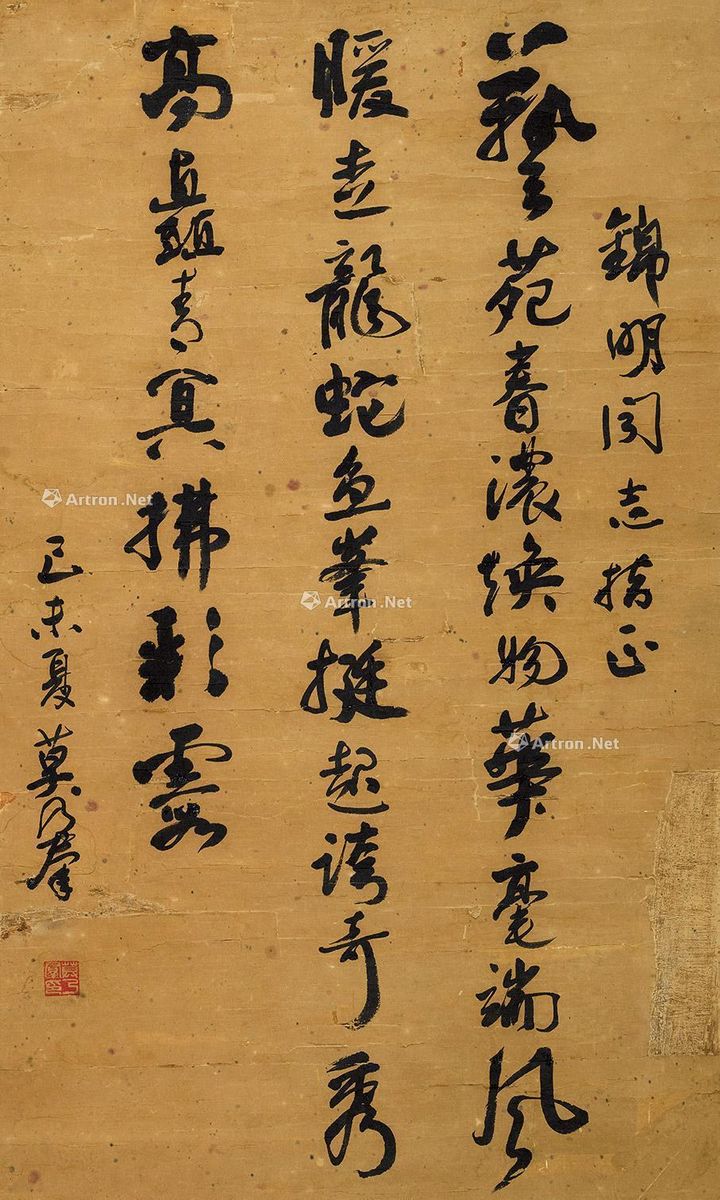 錦明同志指正
藝苑春濃煥物華毫端風
暖走龍蛇魚峯挺起誇奇秀
高矗青冥拂彩霞
己未夏莫乃羣
Artron.Net
Artron.Net
Artron.Net